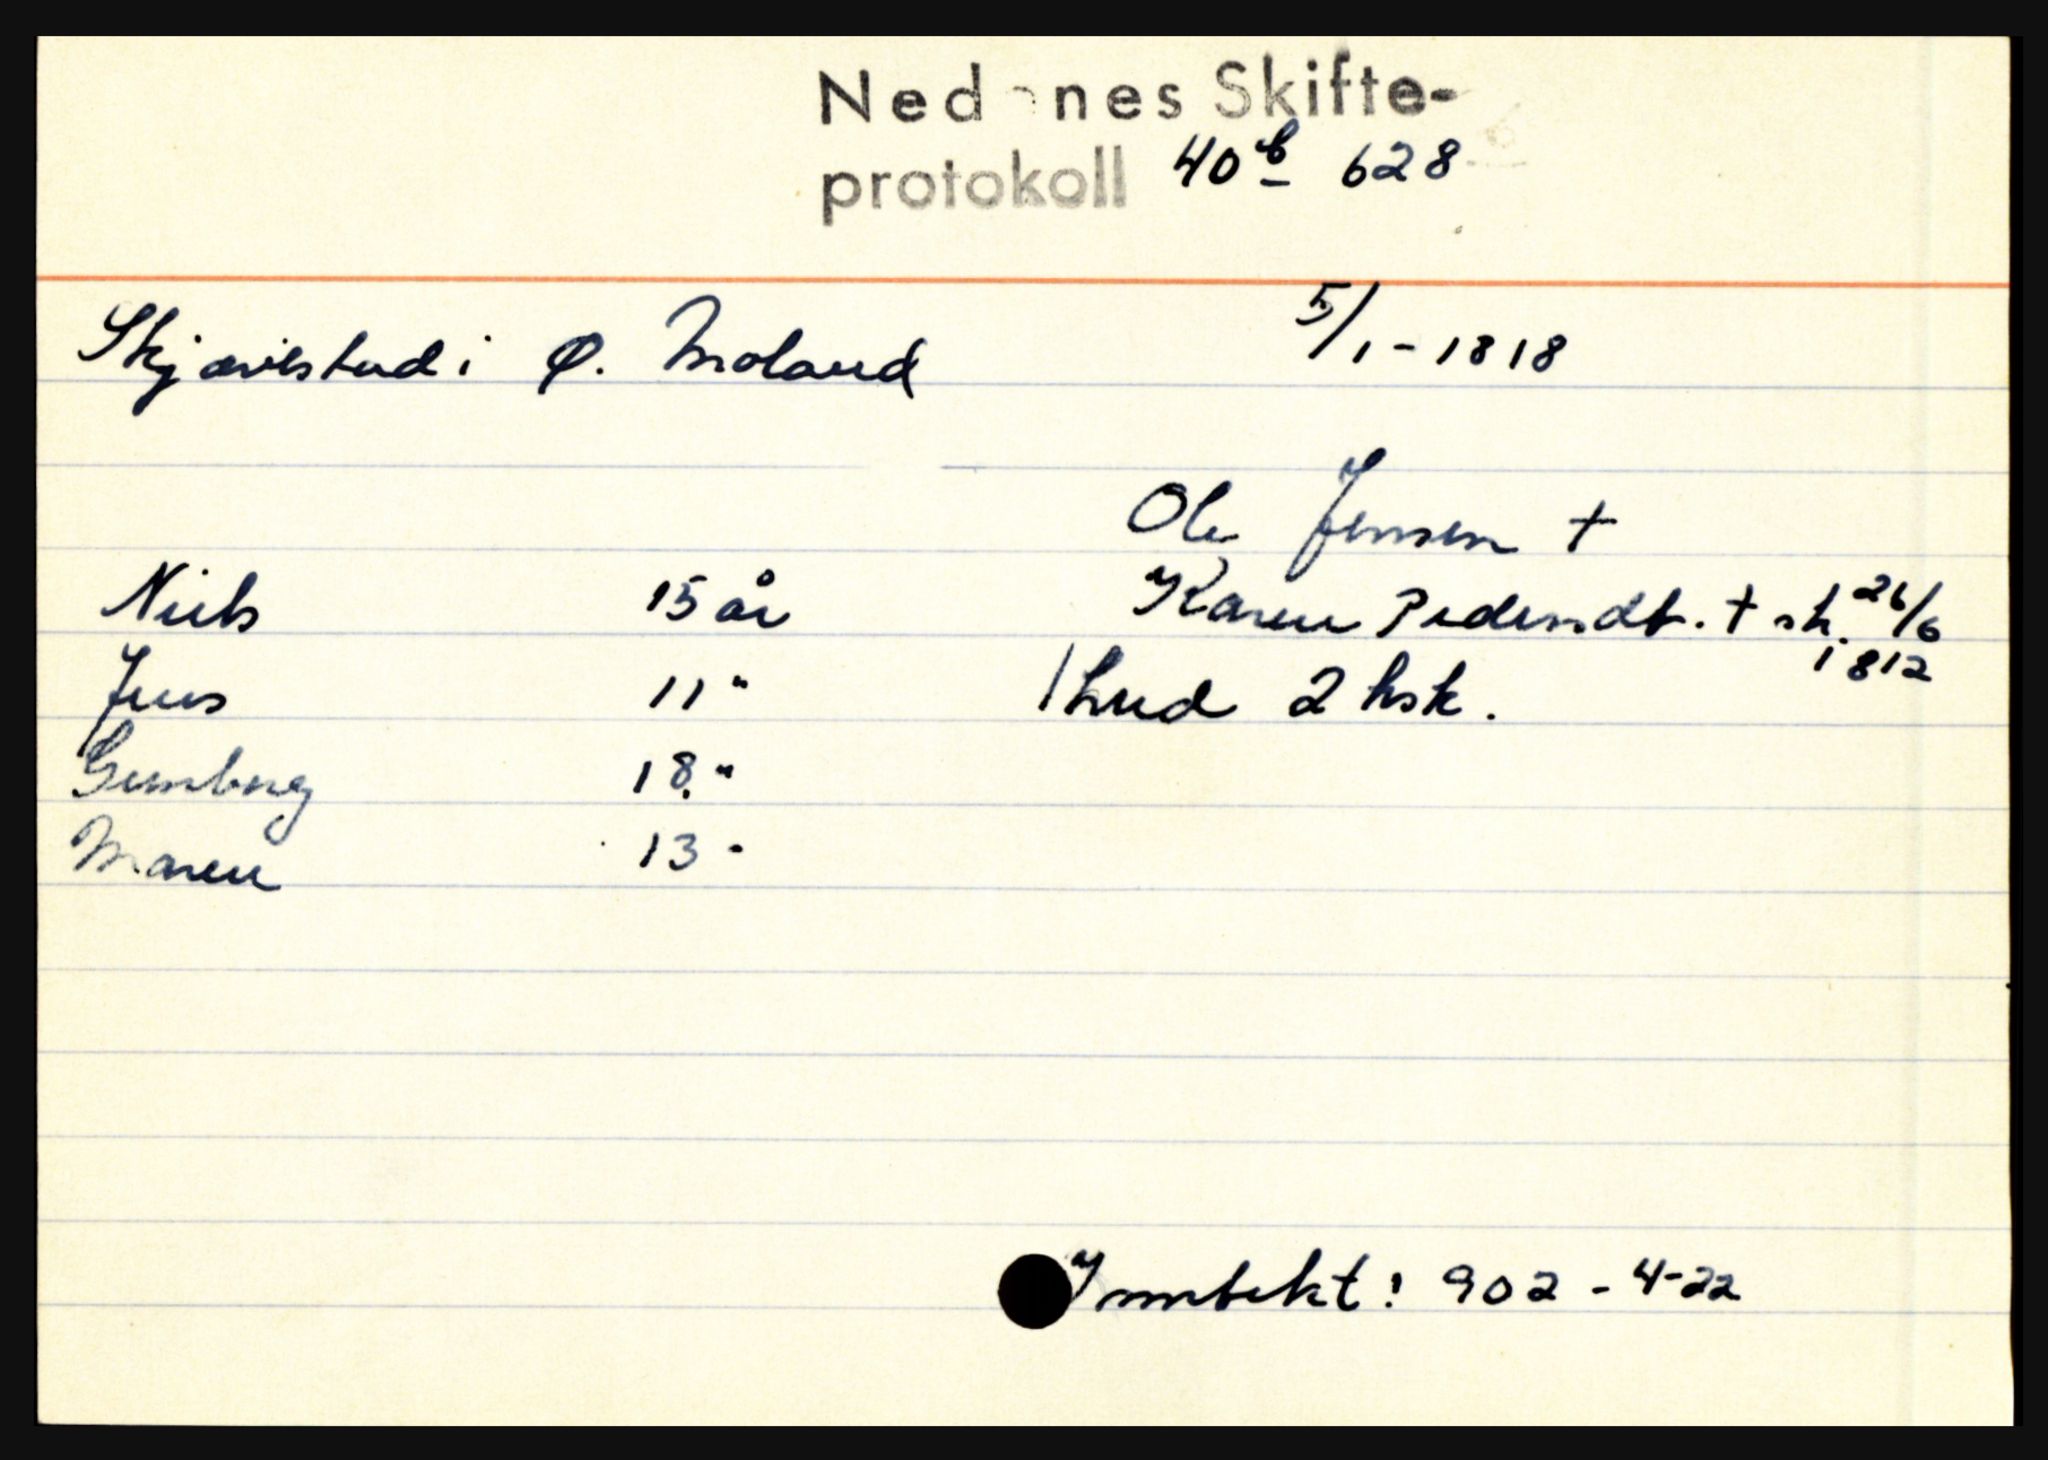 Nedenes Skifte-
protokoll 40b 628
Skjævestad i Ø. Moland 5/1-1818
Ole Jensen †
Niels 15 år Karen Pedersdt. † sk. 26/6
1812
Jens 11 " 1 hud 2 ksk.
Gunborg 18 "
Maren 13 -
Inntekt: 902 - 4-22